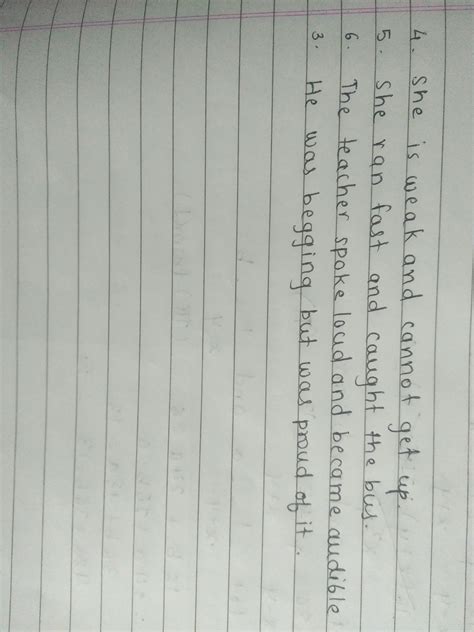 4. She is weak and cannot get up.
5. She ran fast and caught the bus.
6. The teacher spoke loud and became audible
3. He was begging but was proud of it.